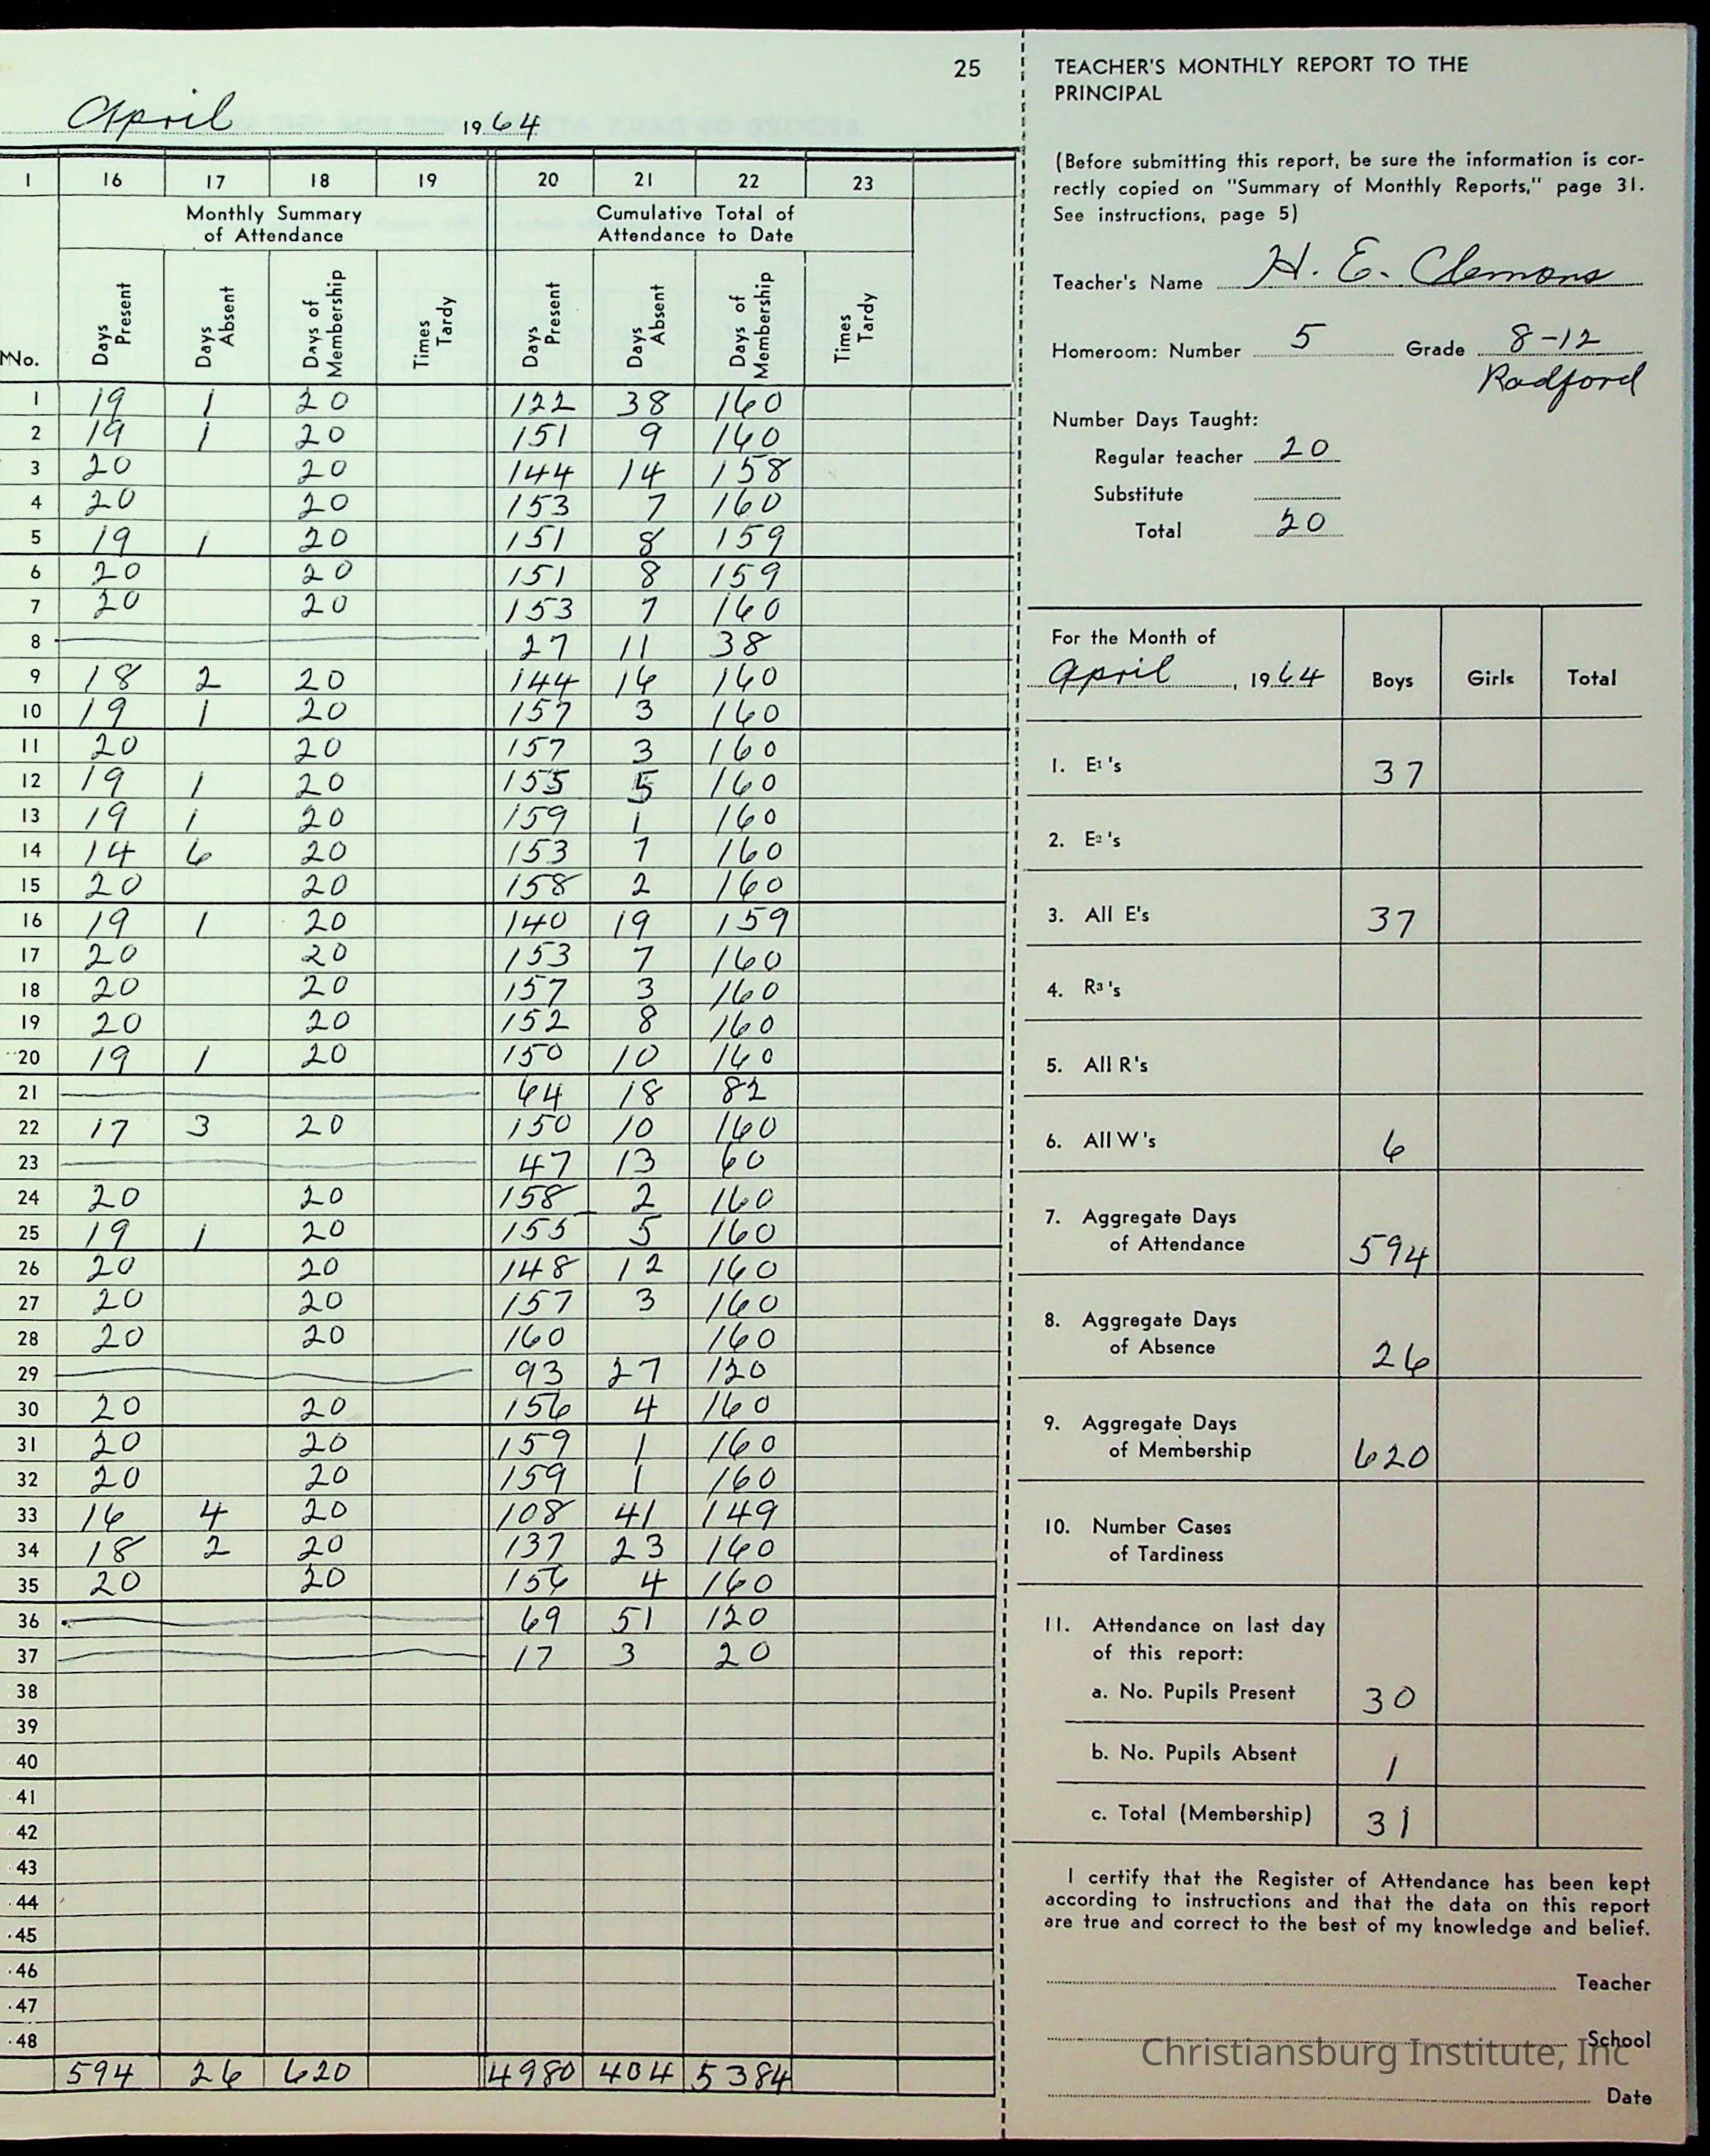 25
April 1964
1 16 17 18 19 20 21 22 23
Monthly Summary of Attendance Cumulative Total of Attendance to Date
No. Days Present Days Absent Days of Membership Times Tardy Days Present Days Absent Days of Membership Times Tardy
1 19 1 20 122 38 160
2 19 1 20 151 9 160
3 20 20 144 14 158
4 20 20 153 7 160
5 19 1 20 151 8 159
6 20 20 151 8 159
7 20 20 153 7 160
8 27 11 38
9 18 2 20 144 16 160
10 19 1 20 157 3 160
11 20 20 157 3 160
12 19 1 20 155 5 160
13 19 1 20 159 1 160
14 14 6 20 153 7 160
15 20 20 158 2 160
16 19 1 20 140 19 159
17 20 20 153 7 160
18 20 20 157 3 160
19 20 20 152 8 160
20 19 1 20 150 10 160
21 64 18 82
22 17 3 20 150 10 160
23 47 13 60
24 20 20 158 2 160
25 19 1 20 155 5 160
26 20 20 148 12 160
27 20 20 157 3 160
28 20 20 160 160
29 93 27 120
30 20 20 156 4 160
31 20 20 159 1 160
32 20 20 159 1 160
33 16 4 20 108 41 149
34 18 2 20 137 23 160
35 20 20 156 4 160
36 69 51 120
37 17 3 20
38
39
40
41
42
43
44
45
46
47
48
594 26 620 4980 404 5384
TEACHER'S MONTHLY REPORT TO THE
PRINCIPAL
(Before submitting this report, be sure the information is cor-
rectly copied on "Summary of Monthly Reports," page 31.
See instructions, page 5)
Teacher's Name H. E. Clemons
Homeroom: Number 5 Grade 8-12
Radford
Number Days Taught:
Regular teacher 20
Substitute
Total 20
For the Month of
April, 1964 Boys Girls Total
1. E1's 37
2. E2's
3. All E's 37
4. R3's
5. All R's
6. All W's 6
7. Aggregate Days
of Attendance 594
8. Aggregate Days
of Absence 26
9. Aggregate Days
of Membership 620
10. Number Cases
of Tardiness
11. Attendance on last day
of this report:
a. No. Pupils Present 30
b. No. Pupils Absent 1
c. Total (Membership) 31
I certify that the Register of Attendance has been kept
according to instructions and that the data on this report
are true and correct to the best of my knowledge and belief.
Teacher
School
Christiansburg Institute, Inc
Date